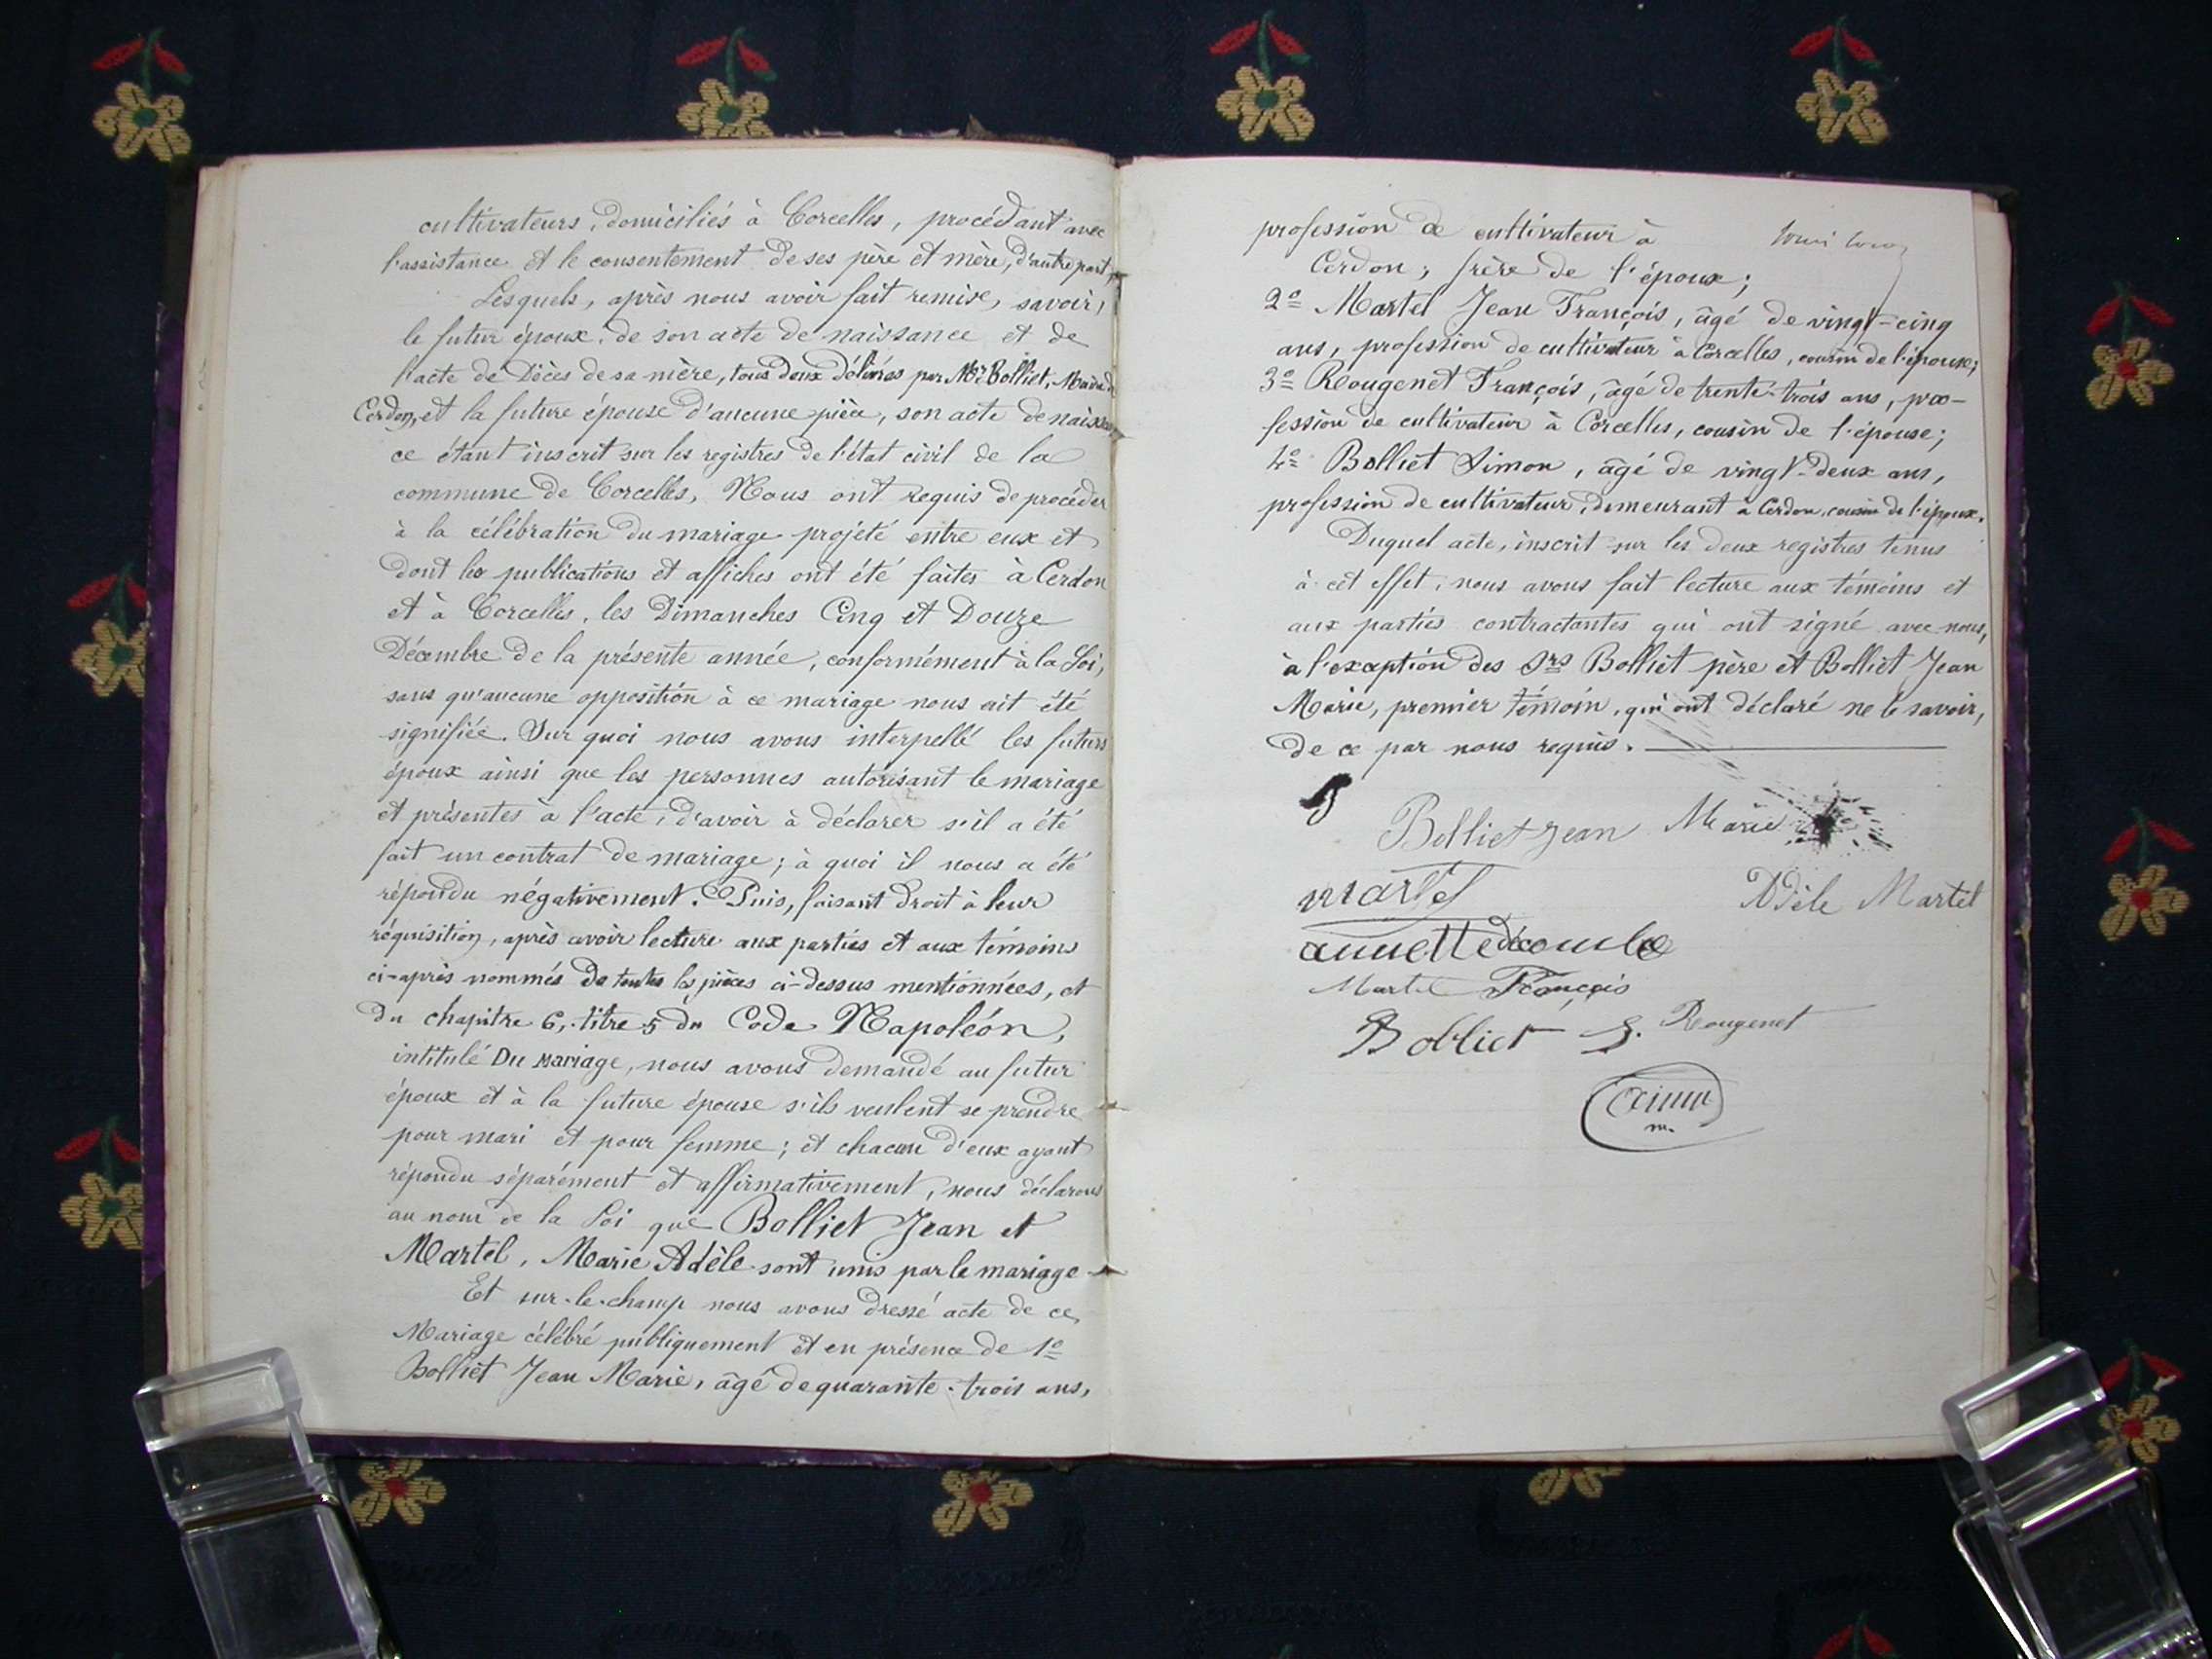 cultivateurs, domiciliés à Corcelles, procédant avec
l'assistance et le consentement de ses père et mère, d'autre part,
Lesquels, après nous avoir fait remise, savoir,
le futur époux, de son acte de naissance et de
l'acte de Décès de sa mère, tous deux délivrés par Mr. Bolliet, Maire de
Cerdon, et la future épouse d'aucune pièce, son acte de naissan
ce étant inscrit sur les registres de l'état civil de la
commune de Corcelles, Nous ont requis de procéder
à la célébration du mariage projeté entre eux et
dont les publications et affiches ont été faites à Cerdon
et à Corcelles, les Dimanches Cinq et Douze
Décembre de la présente année, conformément à la Loi,
sans qu'aucune opposition à ce mariage nous ait été
signifiée. Sur quoi nous avons interpellé les futurs
époux ainsi que les personnes autorisant le mariage
et présentes à l'acte, d'avoir à déclarer s'il a été
fait un contrat de mariage; à quoi il nous a été
répondu négativement. Puis, faisant droit à leur
réquisition, après avoir lecture aux parties et aux témoins
ci-après nommés de toutes les pièces ci-dessus mentionnées, et
du chapitre 6, titre 5 du Code Napoléon,
intitulé Du Mariage, nous avons demandé au futur
époux et à la future épouse s'ils veulent se prendre
pour mari et pour femme; et chacun d'eux ayant
répondu séparément et affirmativement, nous déclarons
au nom de la Loi que Bolliet Jean et
Martel, Marie Adèle sont unis par le mariage
Et sur-le-champ nous avons dressé acte de ce
Mariage célébré publiquement et en présence de 1º
Bolliet Jean Marie, âgé de quarante-trois ans,
profession de cultivateur à
Cerdon, frère de l'époux;
2º Martel Jean François, âgé de vingt-cinq
ans, profession de cultivateur à Corcelles, cousin de l'épouse;
3º Rougenet François, âgé de trente-trois ans, pro-
fession de cultivateur à Corcelles, cousin de l'épouse;
4º Bolliet Simon, âgé de vingt-deux ans,
profession de cultivateur, demeurant à Cerdon, cousin de l'époux.
Duquel acte, inscrit sur les deux registres tenus
à cet effet, nous avons fait lecture aux témoins et
aux parties contractantes qui ont signé avec nous,
à l'exception des Srs Bolliet père et Bolliet Jean
Marie, premier témoin, qui ont déclaré ne le savoir,
de ce par nous requis.
Bolliet Jean Marie
Martel
Adèle Martel
annette decombe
Martel François
Bolliet S. Rougenet